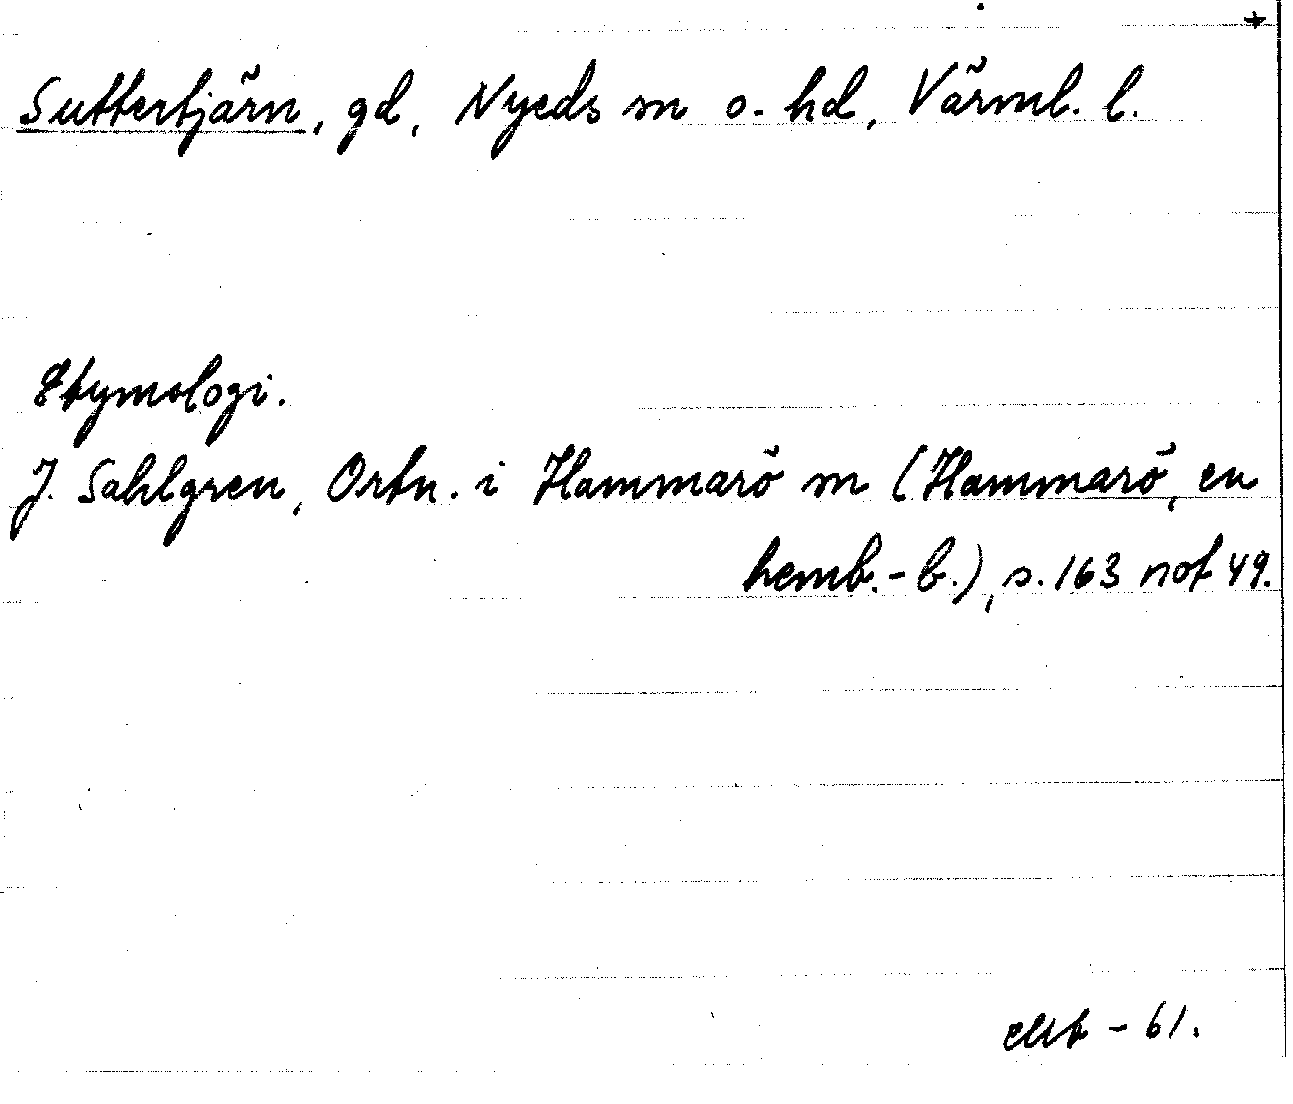 +
Suttertjärn, gd, Nyeds sn o. hd, Värml. l.
Etymologi.
J. Sahlgren, Ortn. i Hammarö sn (Hammarö, en
hemb.-b.), s. 163 not 49.
- 61.